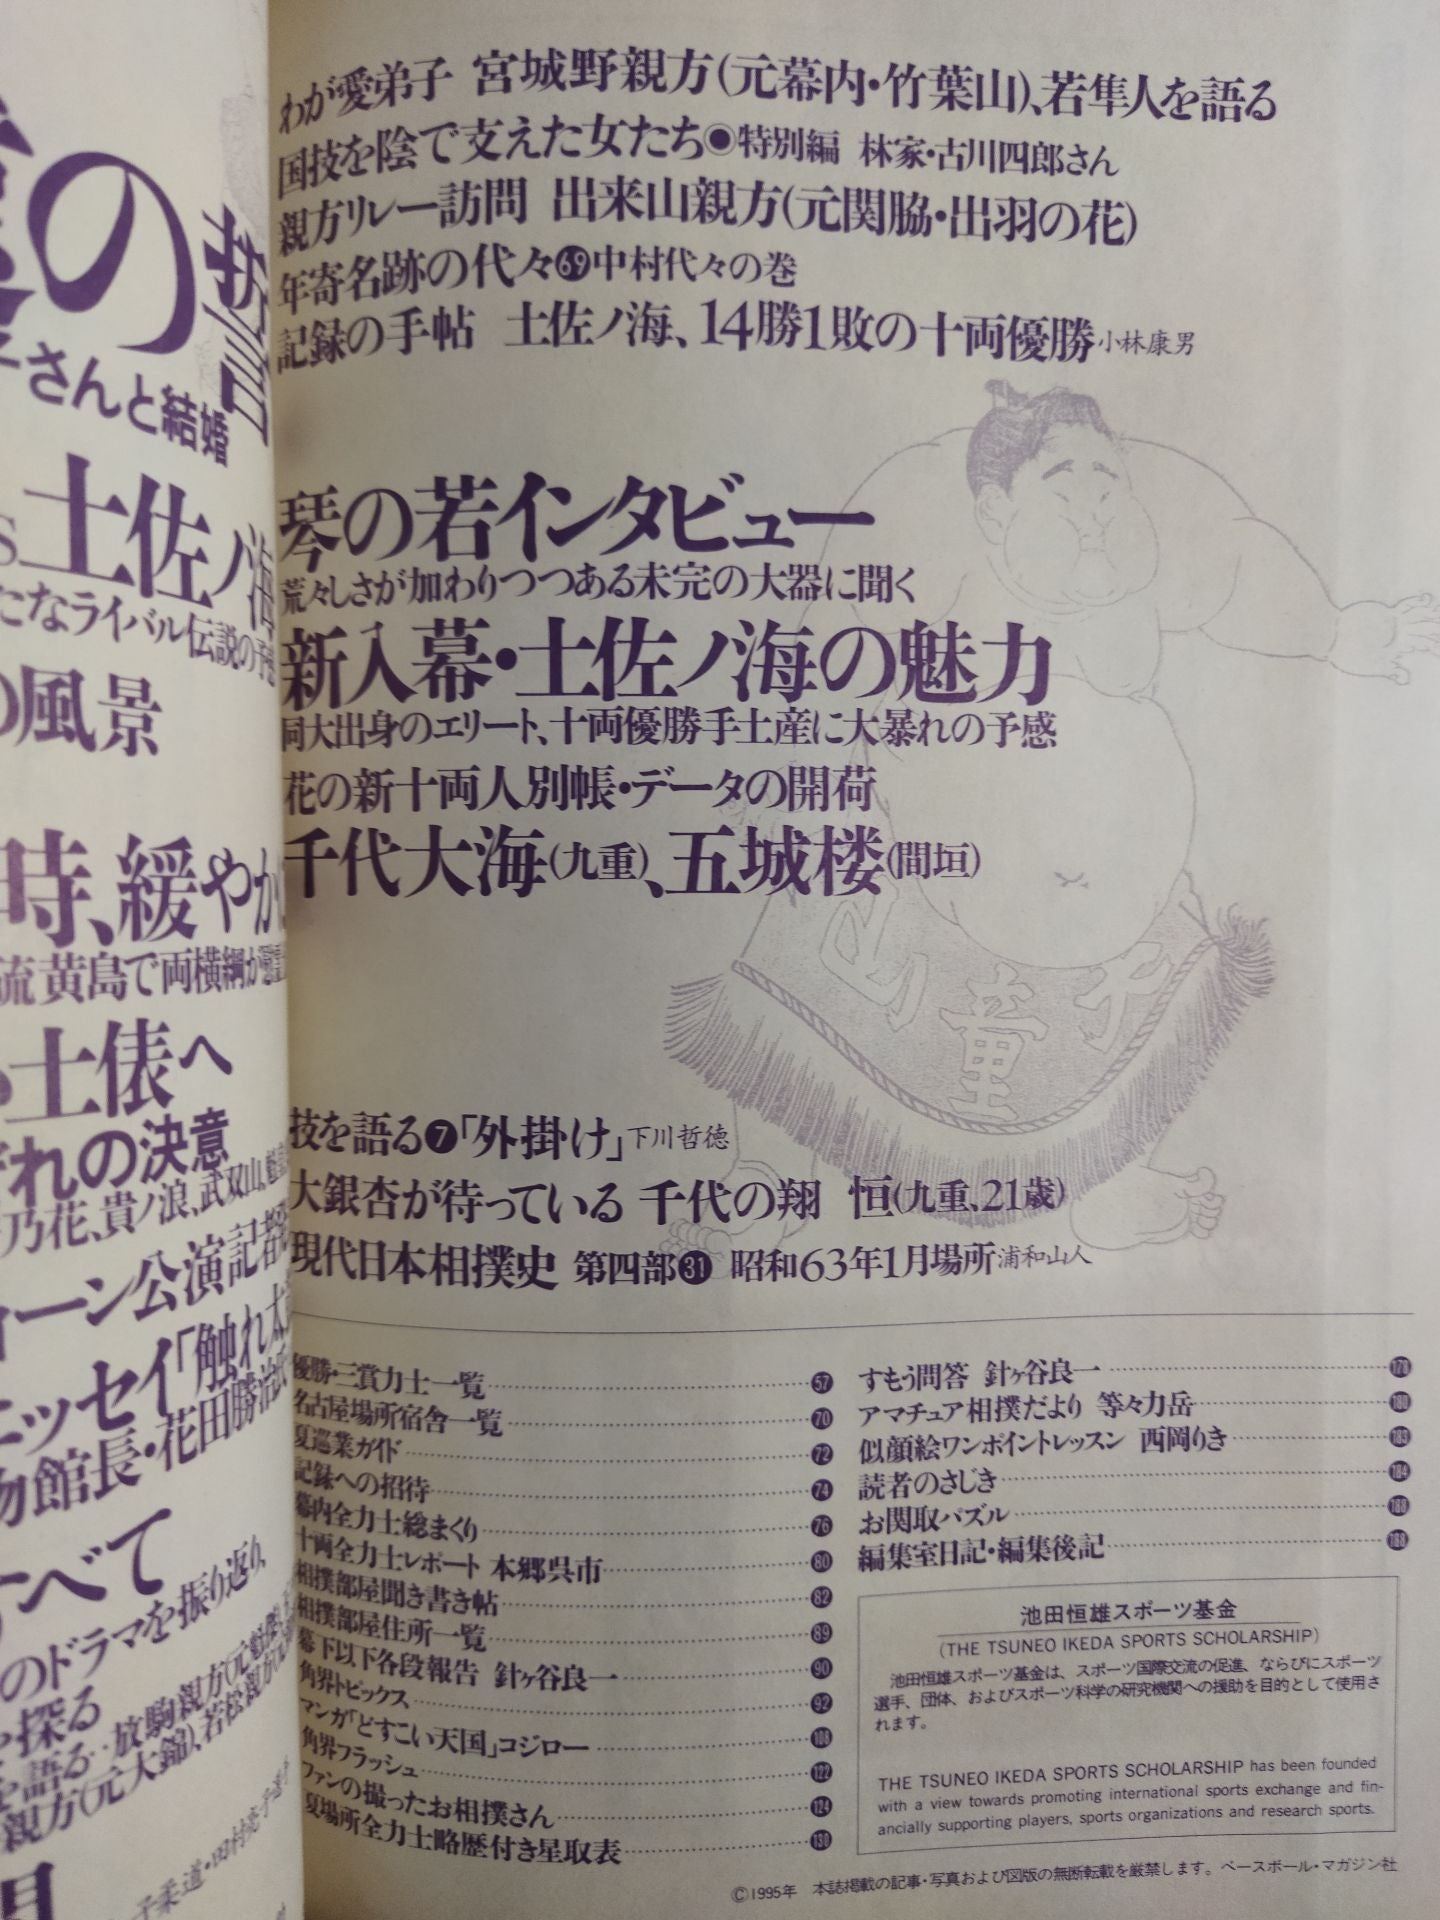 の
さんと結婚
土佐ノ海
たなライバル伝説の予
の風景
時、緩やか
硫黄島で両横綱が
土俵へ
ぞれの決意
乃花、貴ノ浪、武双山、
ーン公演記
エッセイ「触れ太
物館長・花田勝治氏
すべて
のドラマを振り返り、
探る
語る‥放駒親方(元魁傑)
親方(元大錦)、若松親方(元
子柔道・田村亮子
わが愛弟子 宮城野親方(元幕内・竹葉山)、若隼人を語る
国技を陰で支えた女たち◉特別編 林家・古川四郎さん
親方リレー訪問 出来山親方(元関脇・出羽の花)
年寄名跡の代々69中村代々の巻
記録の手帖 土佐ノ海、14勝1敗の十両優勝 小林康男
琴の若インタビュー
荒々しさが加わりつつある未完の大器に聞く
新入幕・土佐ノ海の魅力
同大出身のエリート、十両優勝手土産に大暴れの予感
花の新十両人別帳・データの開荷
千代大海(九重)、五城楼(間垣)
山童子
技を語る❼「外掛け」下川哲徳
大銀杏が待っている 千代の翔 恒(九重、21歳)
現代日本相撲史 第四部31 昭和63年1月場所 浦和山人
優勝・三賞力士一覧……57
名古屋場所宿舎一覧……70
夏巡業ガイド……72
記録への招待……74
幕内全力士総まくり……76
十両全力士レポート 本郷呉市……80
相撲部屋聞き書き帖……82
相撲部屋住所一覧……89
幕下以下各段報告 針ヶ谷良一……90
角界トピックス……92
マンガ「どすこい天国」コジロー……108
角界フラッシュ……122
ファンの撮ったお相撲さん……124
夏場所全力士略歴付き星取表……130
すもう問答 針ヶ谷良一……178
アマチュア相撲だより 等々力岳……180
似顔絵ワンポイントレッスン 西岡りき……183
読者のさじき……184
お関取パズル……188
編集室日記・編集後記……188
池田恒雄スポーツ基金
(THE TSUNEO IKEDA SPORTS SCHOLARSHIP)
池田恒雄スポーツ基金は、スポーツ国際交流の促進、ならびにスポーツ
選手、団体、およびスポーツ科学の研究機関への援助を目的として使用さ
れます。
THE TSUNEO IKEDA SPORTS SCHOLARSHIP has been founded
with a view towards promoting international sports exchange and fin-
ancially supporting players, sports organizations and research sports.
©1995年 本誌掲載の記事・写真および図版の無断転載を厳禁します。ベースボール・マガジン社